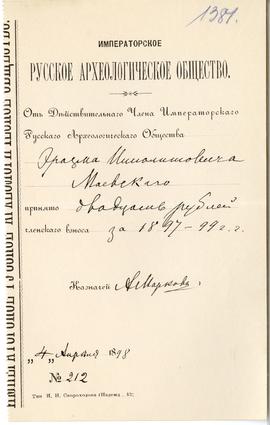 1381.
ИМПЕРАТОРСКОЕ
РУССКОЕ АРХЕОЛОГИЧЕСКОЕ ОБЩЕСТВО.
Отъ Дѣйствительнаго Члена Императорскаго
Русскаго Археологическаго Общества
Эразма Ипполитовича
Маевскаго
принято двадцать рублей
членскаго взноса за 1897-99 г.г.
Казначей А. Марковъ
„4" Апрѣля 1898
№ 212
Тип. И. Н. Скороходова (Надежд., 43)